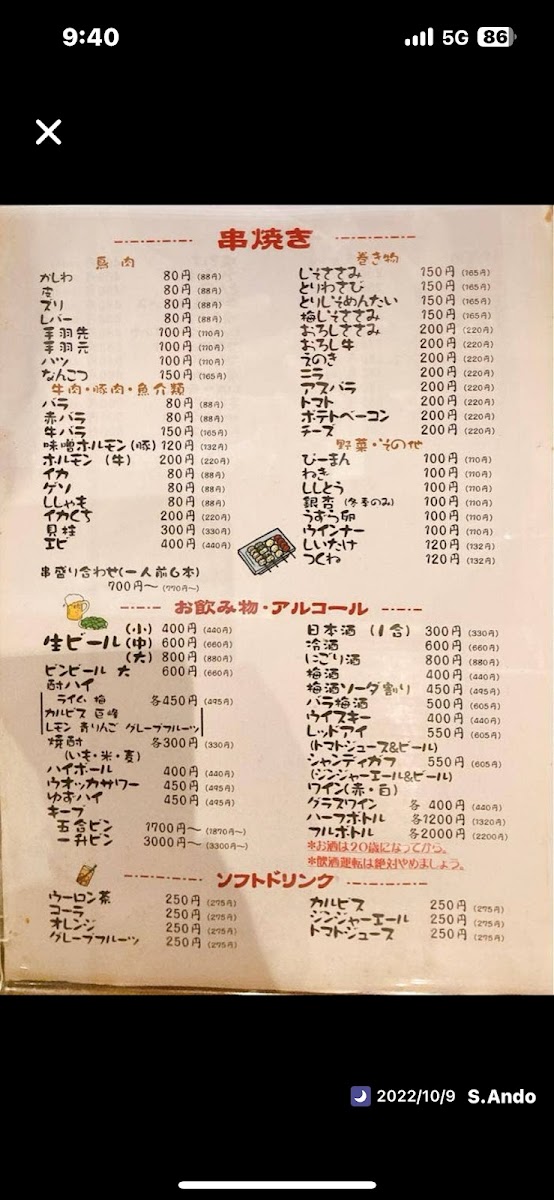 9:40
5G 86
串焼き
鳥肉
かしわ 80円(88円)
皮 80円(88円)
ズリ 80円(88円)
レバー 80円(88円)
手羽先 100円(110円)
手羽元 100円(110円)
ハツ 100円(110円)
なんこつ 150円(165円)
牛肉・豚肉・魚介類
バラ 80円(88円)
赤バラ 80円(88円)
牛バラ 150円(165円)
味噌ホルモン(豚) 120円(132円)
ホルモン(牛) 200円(220円)
イカ 80円(88円)
ゲソ 80円(88円)
ししゃも 80円(88円)
イカくち 200円(220円)
貝柱 300円(330円)
エビ 400円(440円)
串盛り合わせ(一人前6本)
700円〜(770円〜)
巻き物
しそささみ 150円(165円)
とりわさび 150円(165円)
とりしそめんたい 150円(165円)
梅しそささみ 150円(165円)
おろしささみ 200円(220円)
おろし牛 200円(220円)
えのき 200円(220円)
ニラ 200円(220円)
アスパラ 200円(220円)
トマト 200円(220円)
ポテトベーコン 200円(220円)
チーズ 200円(220円)
野菜・その他
ぴーまん 100円(110円)
ねぎ 100円(110円)
ししとう 100円(110円)
銀杏(冬季のみ) 100円(110円)
うずら卵 100円(110円)
ウインナー 100円(110円)
しいたけ 120円(132円)
つくね 120円(132円)
お飲み物・アルコール
(小) 400円(440円)
生ビール(中) 600円(660円)
(大) 800円(880円)
ビンビール 大 600円(660円)
酎ハイ
ライム 梅 各450円(495円)
カルピス 巨峰
レモン 青りんご グレープフルーツ
焼酎 各300円(330円)
(いも・米・麦)
ハイボール 400円(440円)
ウオッカサワー 450円(495円)
ゆずハイ 450円(495円)
キープ
五合ビン 1700円〜(1870円〜)
一升ビン 3000円〜(3300円〜)
日本酒(1合) 300円(330円)
冷酒 600円(660円)
にごり酒 800円(880円)
梅酒 400円(440円)
梅酒ソーダ割り 450円(495円)
バラ梅酒 500円(605円)
ウイスキー 400円(440円)
レッドアイ 550円(605円)
(トマトジュース&ビール)
シャンディガフ 550円(605円)
(ジンジャーエール&ビール)
ワイン(赤・白)
グラスワイン 各400円(440円)
ハーフボトル 各1200円(1320円)
フルボトル 各2000円(2200円)
*お酒は20歳になってから。
*飲酒運転は絶対やめましょう。
ソフトドリンク
ウーロン茶 250円(275円)
コーラ 250円(275円)
オレンジ 250円(275円)
グレープフルーツ 250円(275円)
カルピス 250円(275円)
ジンジャーエール 250円(275円)
トマトジュース 250円(275円)
2022/10/9 S.Ando